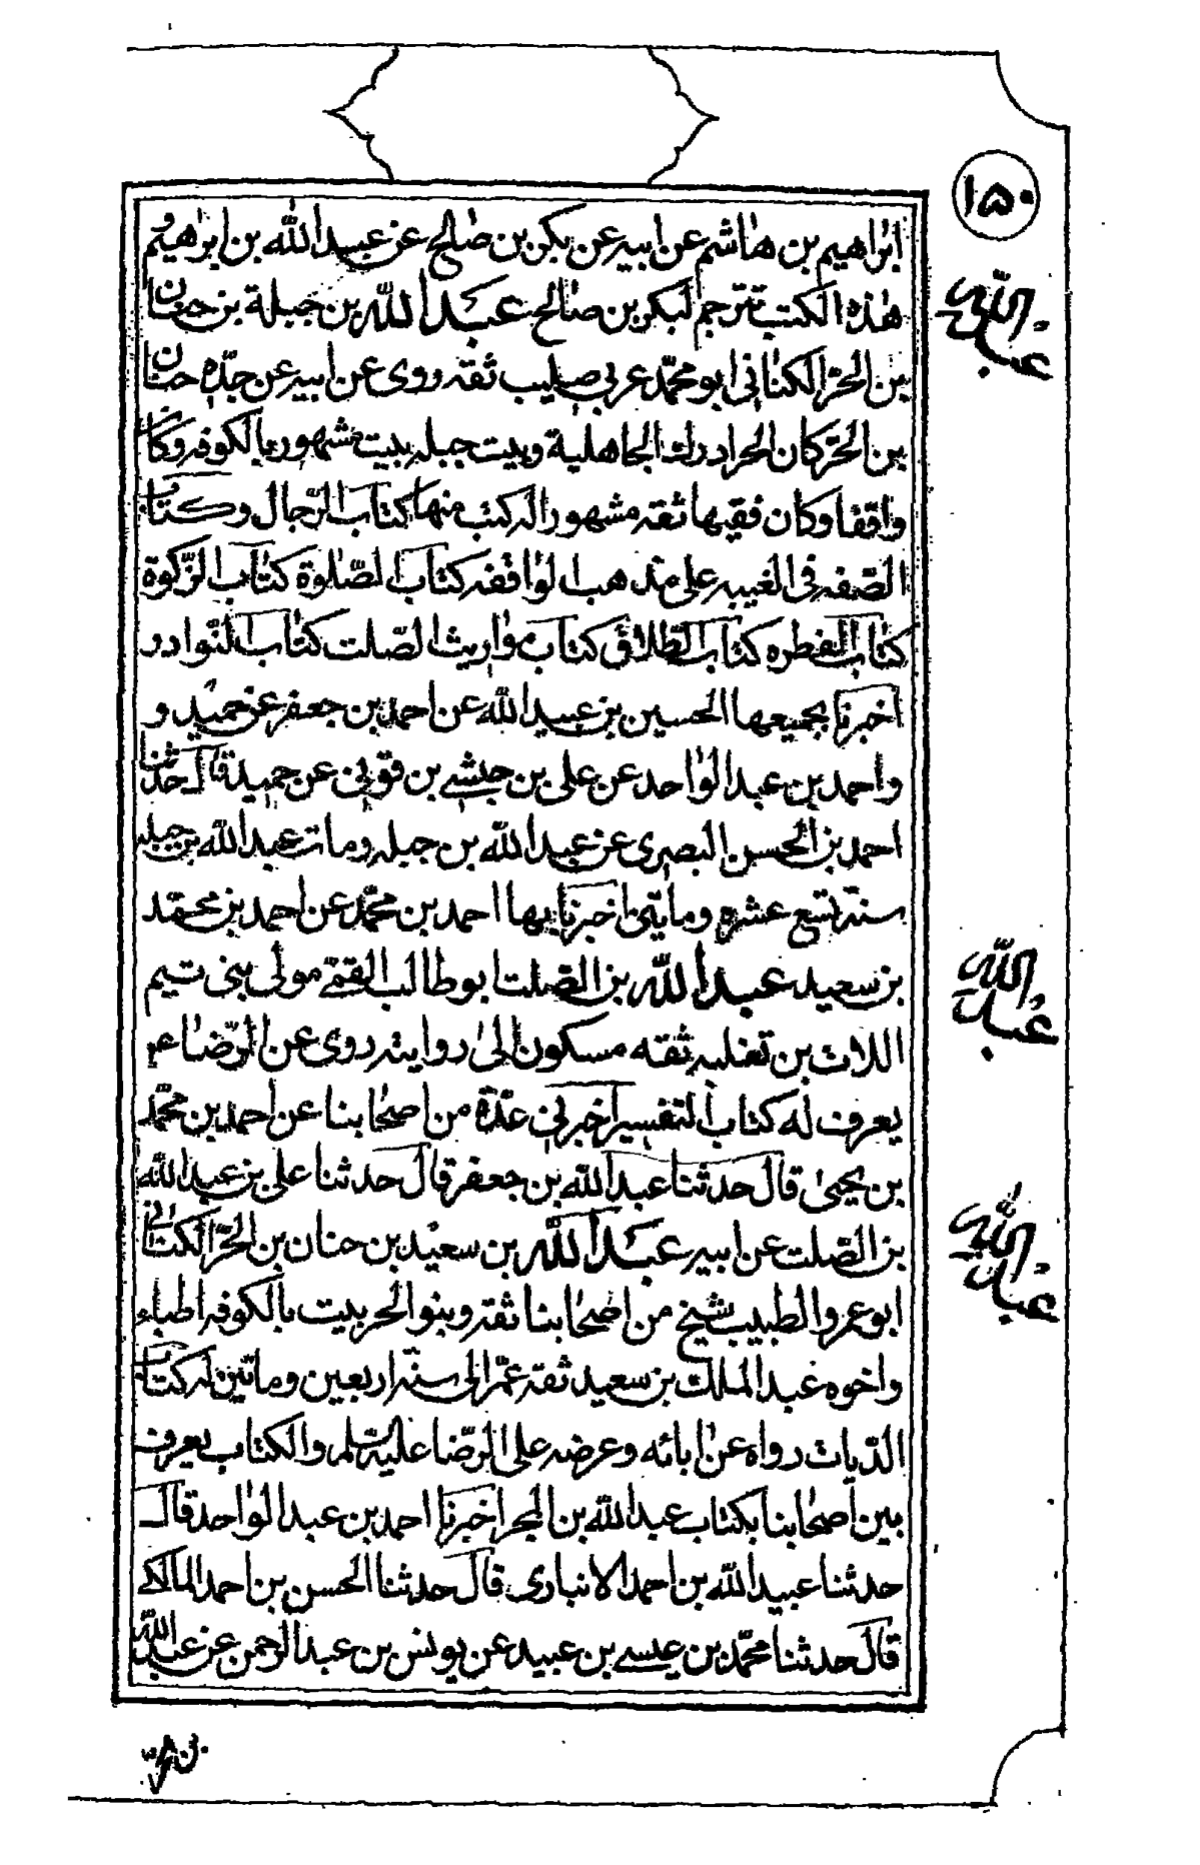 ١٥٠
ابراهيم بن هاشم عن ابيه عن بكر بن صالح عن عبد الله بن ابراهيم و
هذه الكتب تترجم لبكر بن صالح عبد الله بن جبلة بن حنان
عبد الله
بن الحرّ الكناني ابو محمّد عربي صليب ثقه روى عن ابيه عن جدّه حنان
بن الحرّ كان الحر ادرك الجاهلية وبيت جبله بيت مشهور بالكوفه وكان
واقفا وكان فقيها ثقه مشهورا له كتب منها كتاب الرّجال وكتاب
الصّفه فى الغيبه على مذهب الواقفه كتاب الصّلوة كتاب الزّكوة
كتاب الفطره كتاب الطّلاق كتاب مواريث الصّلت كتاب النّوادر
اخبرنا بجميعها الحسين بن عبيد الله عن احمد بن جعفر عن حميد و
واحمد بن عبد الواحد عن على بن حبشے بن قونى عن حميد قال حدثنا
احمد بن الحسن البصرى عن عبد الله بن جبله ومات عبد الله بن جبله
سنة تسع عشره ومايتى اخبرنا بها احمد بن محمّد عن احمد بن محمّد
بن سعيد عبد الله بن الصّلت ابو طالب القمّے مولى بنى تيم
عبد الله
اللات بن تغلبه ثقه مسكون الى روايته روى عن الرّضا ء
يعرف له كتاب التفسير اخبرنى عدّة من اصحابنا عن احمد بن محمّد
بن يحيى قال حدثنا عبد الله بن جعفر قال حدثنا على بن عبد الله
بن الصّلت عن ابيه عبد الله بن سعيد بن حنان بن الحرّ الكنانى
عبد الله
ابو عمرو الطبيب شيخ من اصحابنا ثقه وبنو الحر بيت بالكوفه اطباء
واخوه عبد الملك بن سعيد ثقه عمّر الى سنة اربعين وماتين له كتاب
الدّيات رواه عن ابائه وعرضه على الرّضا عليه السلم والكتاب يعرف
بين اصحابنا بكتاب عبد الله بن الجر اخبرنا احمد بن عبد الواحد قال
حدثنا عبيد الله بن احمد الانبارى قال حدثنا الحسن بن احمد المالكے
قال حدثنا محمّد بن عيسے بن عبيد عن يونس بن عبد الرحمن عن عبد الله